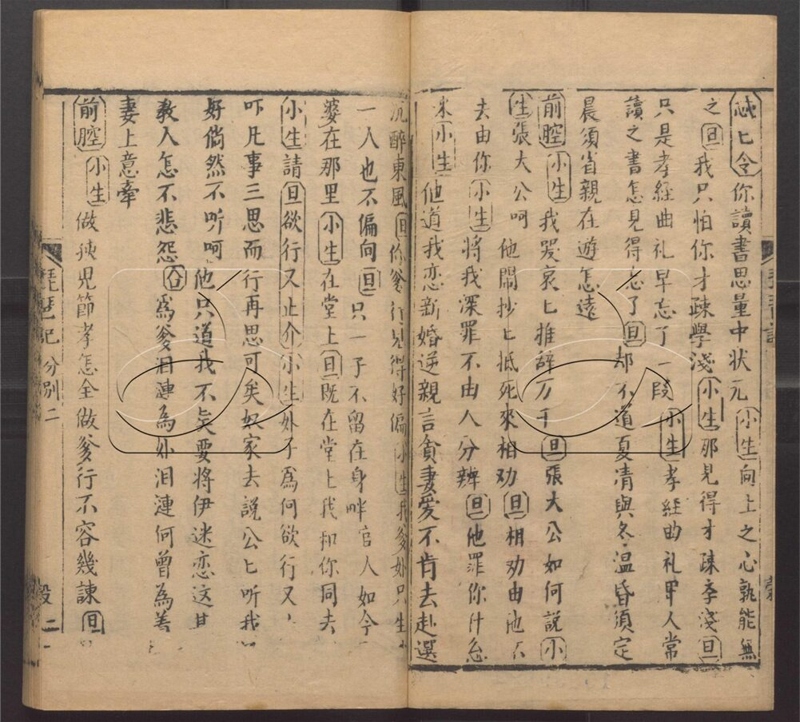 你讀書思量中狀元小生向上之心孰能無
之旦我只怕你才疎學淺小生那見得才疎孝淺旦
只是孝經曲礼早忘了一段小生孝經曲礼早人常
讀之書怎見得忘了旦却不道夏凊與冬温昏須定
晨須省親在遊怎遠
前腔小生我哭哀匕推辞万千旦張大公如何說小
生張大公呵他鬧抄匕抵死來相劝旦相劝由他
去由你小生將我深罪不由人分辨旦他罪你什怎
小生他道我恋新婚逆親言貪妻愛不肯去赴選
沉醉東風旦你爹行見得好偏小生我爹外只生
一人也不偏向旦只一子不留在身畔官人如今
婆在那里小生在堂上旦既在堂上我和你同去
小生請旦欲行又止介小生外子為何欲行又
吓凡事三思而行再思可矣奴家去說公匕听我
好倘然不听呵他只道我不矣要將伊迷恋這其
教人怎不悲怨合爲爹泪漣為外泪漣何曾為着
妻上意牽
前腔小生做孩兒節孝怎全做爹行不容幾諫旦
琵琶記分别二